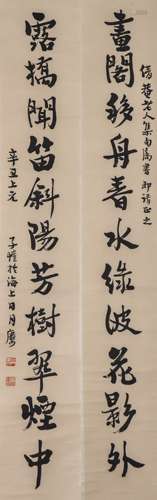 倩菴老人集句屬書 即請正之
畫閣移舟春水綠波花影外
露橋聞笛斜陽芳樹翠煙中
辛丑上元
子愷於海上日月廔